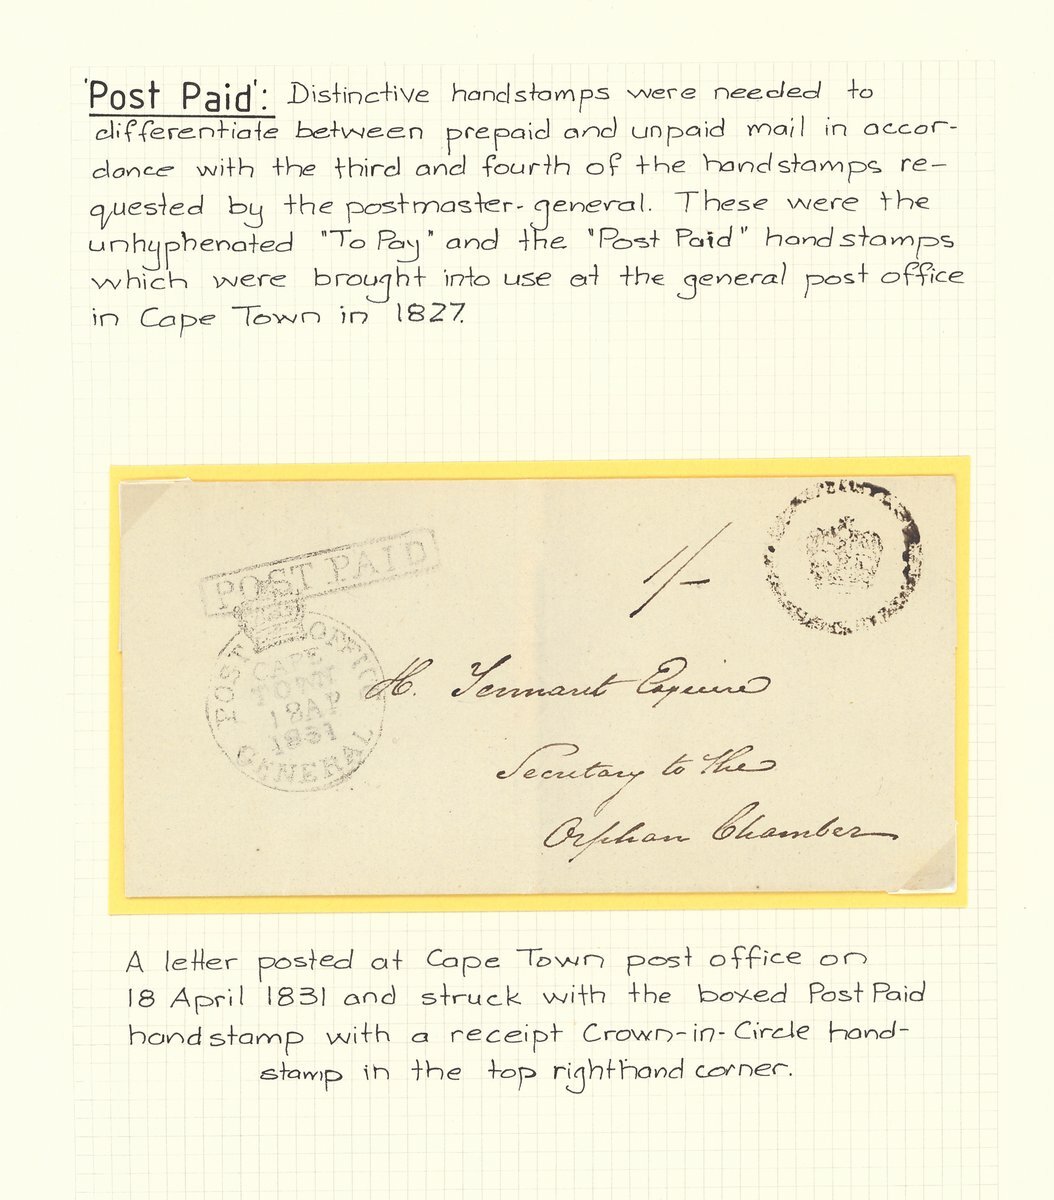 'Post Paid': Distinctive handstamps were needed to
differentiate between prepaid and unpaid mail in accor-
dance with the third and fourth of the handstamps re-
quested by the postmaster-general. These were the
unhyphenated "To Pay" and the "Post Paid" handstamps
which were brought into use at the general post office
in Cape Town in 1827.
POST PAID
1/-
POST OFFICE
CAPE
TOWN
18 AP
1831
GENERAL
H. Tennant Esquire
Secretary to the
Orphan Chamber
A letter posted at Cape Town post office on
18 April 1831 and struck with the boxed Post Paid
handstamp with a receipt Crown-in-Circle hand-
stamp in the top righthand corner.